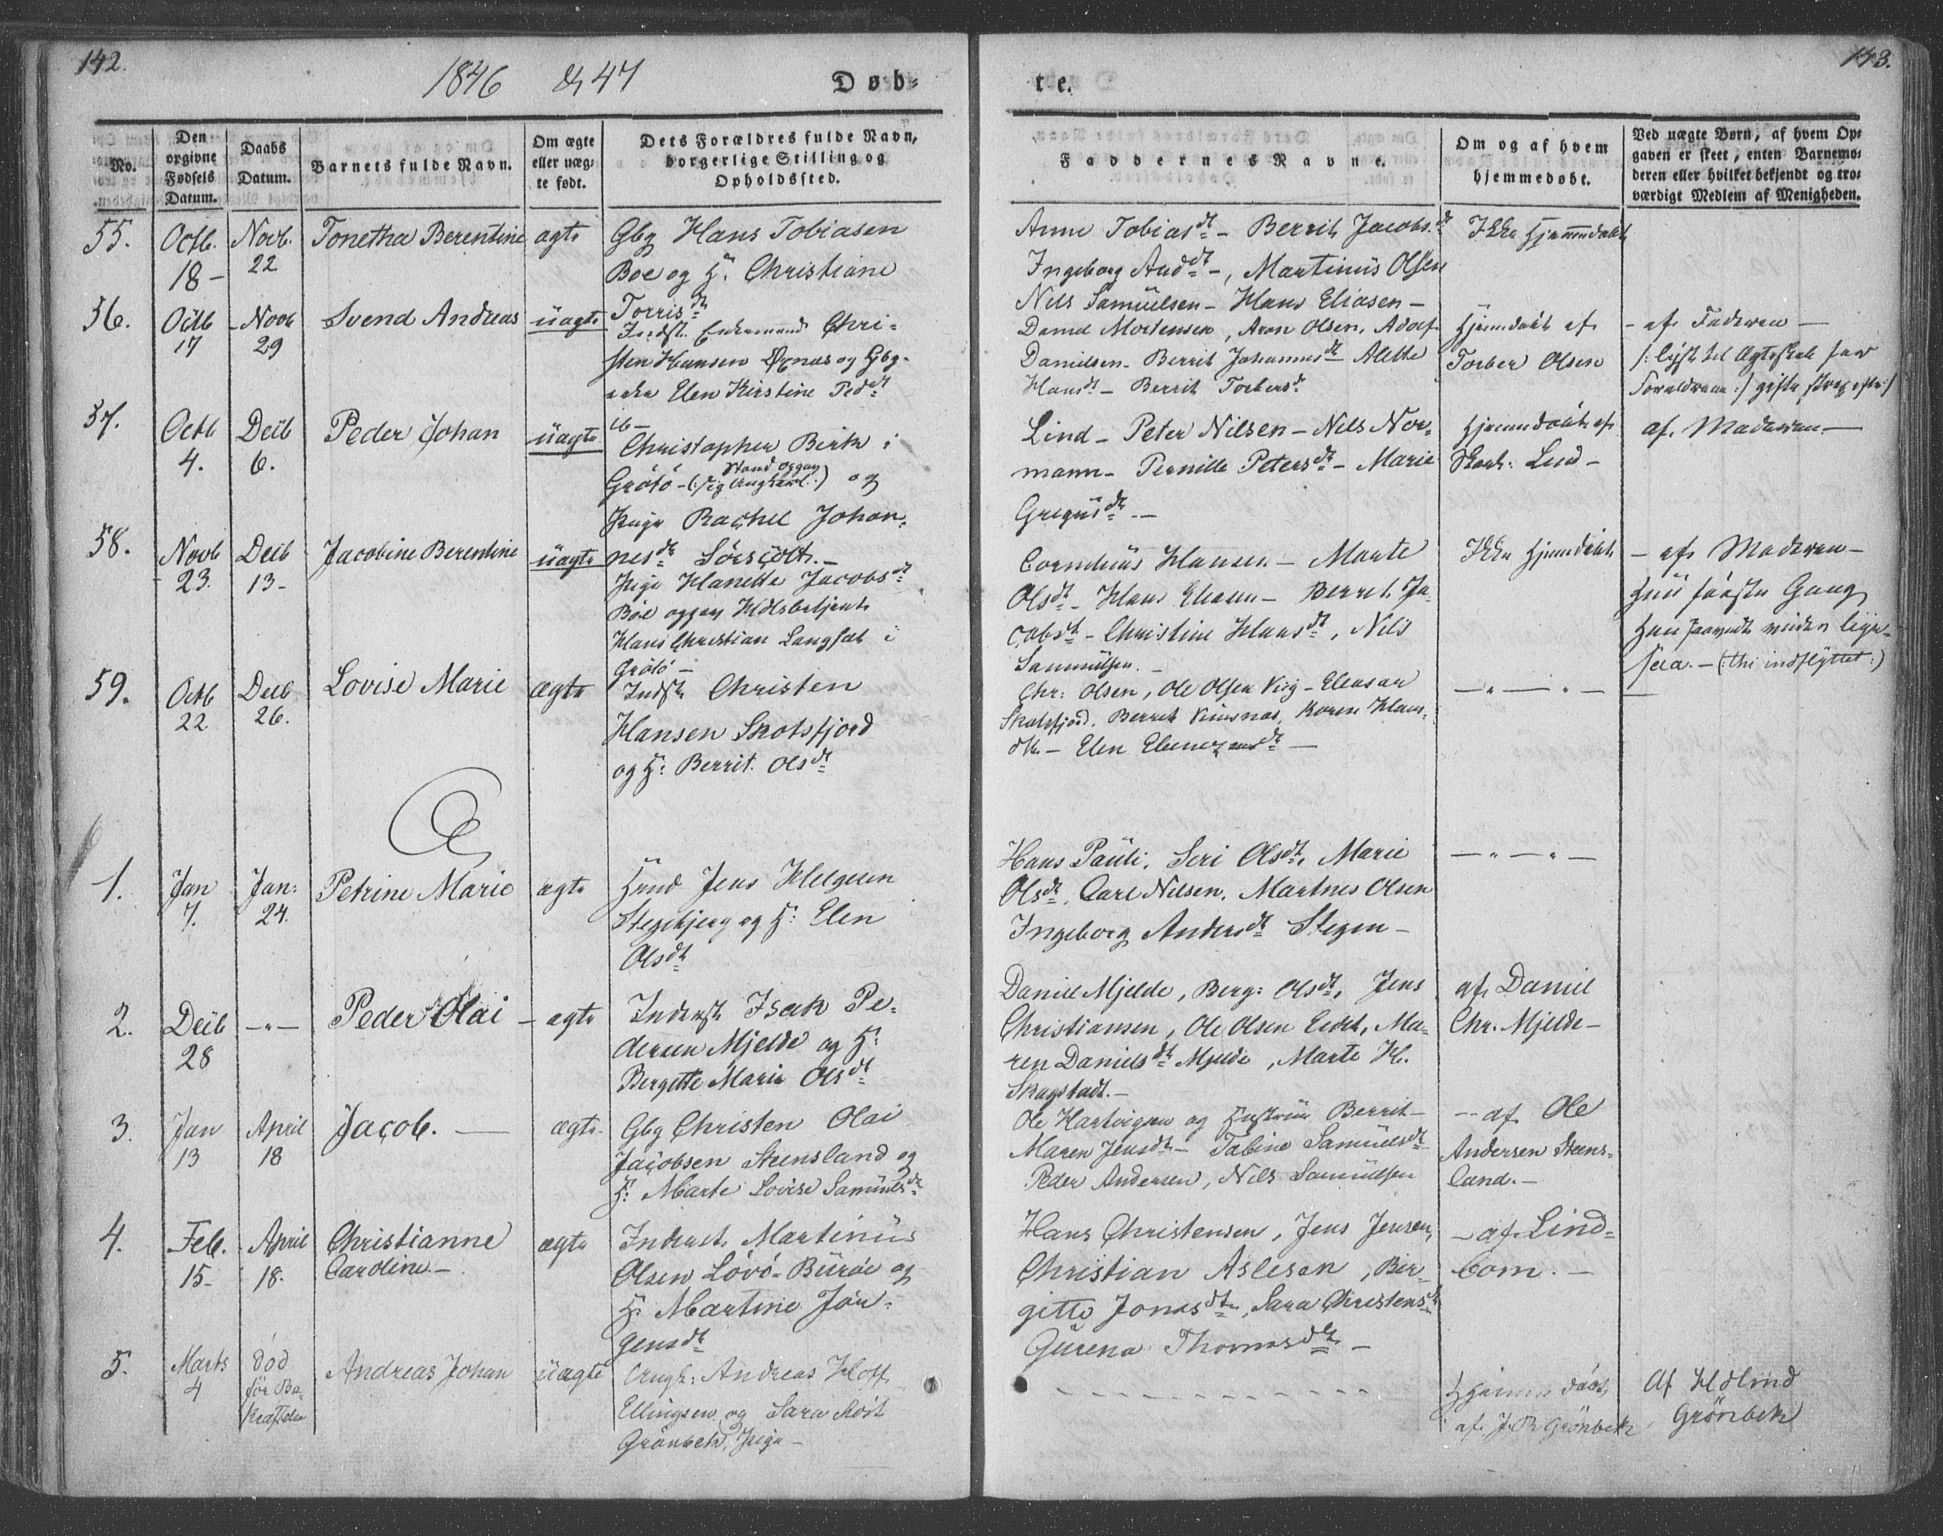 142.
1846 & 47
Døb-
No.
Den
orgivne
Fødsels
Datum.
Daabs
Datum.
Barnets fulde Navn.
Om ægte
eller uæg-
te født.
Dets Forældres fulde Navn,
borgerlige Stilling og
Opholdssted.
55.
Octb.
18 -
Novb.
22
Tonetha Berentine
ægte
Gbg Hans Tobiasen
Boe og H. Christiane
Torrisdt
56.
Octb
17
Novb
29
Svend Andreas
uægte
Indst. Enkemand Chri-
sten Hansen Ørnæs og Gbg-
enke Elen Kirstine Peddt
57.
Octb
4.
Decb
6.
Peder Johan
uægte
Christopher Birk i
Grøtø - og
Pige Rachel Johan-
nesdt
58.
Novb
23.
Decb
13 -
Jacobine Berentine
uægte
Pige Hanette Jacobsdt
Bøe
Hans Christian Langset i
Grøtø -
59.
Octb
22
Decb
26.
Lovise Marie
ægte
Indst Christen
Hansen Skotsfjord
og H: Berrit Olsdt
1.
Jan
7.
Jan:
24.
Petrine Marie
ægte
Hmd Jens Helgesen
Stegbjerg og H: Elen
Olsdt
2.
Decb
28
- " -
Peder Olai -
ægte
Inderst Isak Pe-
dersen Mjelde og H:
Bergitte Marie Olsdt
3.
Jan
13
April
18
Jacob. -
ægte
Gbg Christen Olai
Jacobsen Steensland og
H: Marte Lovise Samuelsdt
4.
Feb.
15 -
April
18.
Christianne
Caroline -
ægte
Inderst. Martinus
Olsen Løvø - Burøe og
H: Martine Jør-
gensdt
5.
Marts
4
død
før Be-
kræftelse
Andreas Johan
uægte
Ungk: Andreas Hoff
Ellingsen og Sara
Grønbek, Pige -
143.
te.
Faddernes Navne.
Om og af hvem
hjemmedøbt.
Ved uægte Børn, af hvem Op-
gaven er skeet, enten Barnemo-
deren eller hvilket bekjendt og tro-
værdigt Medlem af Menigheden.
Anne Tobiasdt - Berrit Jacobsdt
Ingeborg Anddt -, Martinus Olsen
Nils Samuelsen - Hans Eliasen -
Ikke Hjemmdøbt
Daniel Mortensen, Aron Olsen, Adolf
Danielsen - Berrit Johannesdt Alette
Hansdt - Berrit Torbersdt
Hjemdøbt af
Torber Olsen
- af Faderen -
/: lyst til Ægteskab for
Forældrene :/ gifte strax efter :/
Lind - Peter Nilsen - Nils Nor-
mann - Pernille Petersdt - Marie
Gregusdt -
Hjemmdøbt af
Lind -
af. Moderen -
Cornelius Hansen - Marte
Olsdt - Hans Eliasen - Berret Ja-
cobsdt - Christine Hansdt, Nils
Sammulsen. -
Ikke Hjemdøbt
- af Moderen -
Hun første Gang
- (: indflyttet :)
Chr: Olsen, Ole Olsen Virg - Eleasar
Skotsfjord. Berret Karen Hans-
dtr - Elen Ebenezersdt -
- " - " -
Hans Pauli, Seri Olsdt, Marie
Olsdt, Carl Nilsen, Martnes Olsen
Ingeborg Andersdt Stegen -
- " - " -
Daniel Mjelde, Berg: Olsdt, Jens
Christiansen, Ole Olsen Eidet, Ma-
ren Danielsdt Mjelde, Marte H.
Skagstadt. -
af Daniel
Chr. Mjelde -
Ole Hartvigsen og Hustrue Berrit -
Maren Jensdt - Tabine Samuelsdt
Peder Andersen, Nils Samuelsen
- af Ole
Andersen Steens-
land. -
Hans Christensen, Jens Jensen,
Christian Aslesen, Bir-
gitte Jonasdt, Sara Christensdt
Gurena Thomasdt -
- af Lind-
bom. -
- - - - - - - - -
Hjemmedøbt
af J. R Grønbek
Af
Grønbek